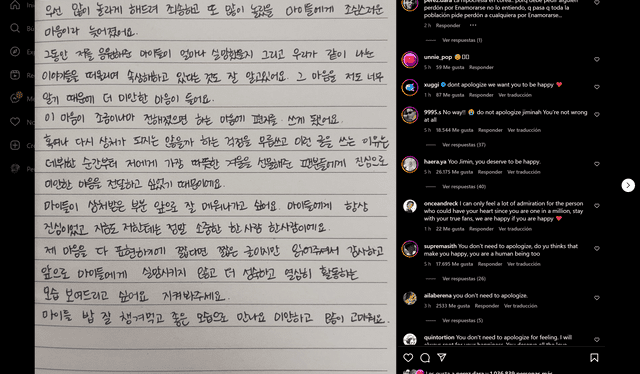 우선 많이 놀라게 해드려 죄송하고 또 많이 놀랐을 마이들에게 조심스러운
마음이라 늦어졌어요.
그동안 저를 응원해준 마이들이 얼마나 실망했을지 그리고 우리가 같이 나눈
이야기들을 떠올리며 속상해하고 있다는 것도 잘 알고있어요. 그 마음을 저도 너무
알기 때문에 더 미안한 마음이 들어요.
이 마음이 조금이나마 전해졌으면 하는 마음에 편지를 쓰게 됐어요.
혹여나 다시 상처가 되지는 않을까 하는 걱정을 무릅쓰고 이런 글을 쓰는 이유는
데뷔한 순간부터 저에게 가장 따뜻한 겨울을 선물해준 팬분들에게 진심으로
미안한 마음을 전달하고 싶었기 때문이에요.
마이들이 상처받은 부분 앞으로 잘 메워나가고 싶어요. 마이들에게 항상
진심이었고 지금도 저한테는 정말 소중한 한 사람 한사람이에요.
제 마음을 다 표현하기에 짧다면 짧은 글이지만 읽어주셔서 감사하고
앞으로 마이들에게 실망시키지 않고 더 성숙하고 열심히 활동하는
모습 보여드리고 싶어요. 지켜봐주세요.
마이들 밥 잘 챙겨먹고 좋은 모습으로 만나요 미안하고 많이 고마워요.
perdón por Enamorarse no lo entiendo, q pasa q toda la
población pide perdón a cualquiera por Enamorarse...
2 h Responder
Ver respuestas (1)
unnie_pop
5 h 59 Me gusta Responder
xuggi dont apologize we want you to be happy ❤️
1 h 87 Me gusta Responder Ver traducción
9995.s No way!! do not apologize jiminah You're not wrong
at all
5 h 18.544 Me gusta Responder Ver traducción
Ver respuestas (37)
haera.ya Yoo Jimin, you deserve to be happy.
5 h 26.175 Me gusta Responder Ver traducción
Ver respuestas (40)
onceandreck I can only feel a lot of admiration for the person
who could have your heart since you are one in a million, stay
with your true fans, we are happy if you are happy ❤️
1 h 22 Me gusta Responder Ver traducción
supremasith You don't need to apologize, do yu thinks that
make you happy, you are a human being too
5 h 17.695 Me gusta Responder Ver traducción
Ver respuestas (26)
ailaberena you don't need to apologize.
3 h 2533 Me gusta Responder Ver traducción
Ver respuestas (5)
quintortion You don't need to apologize for feeling. I will